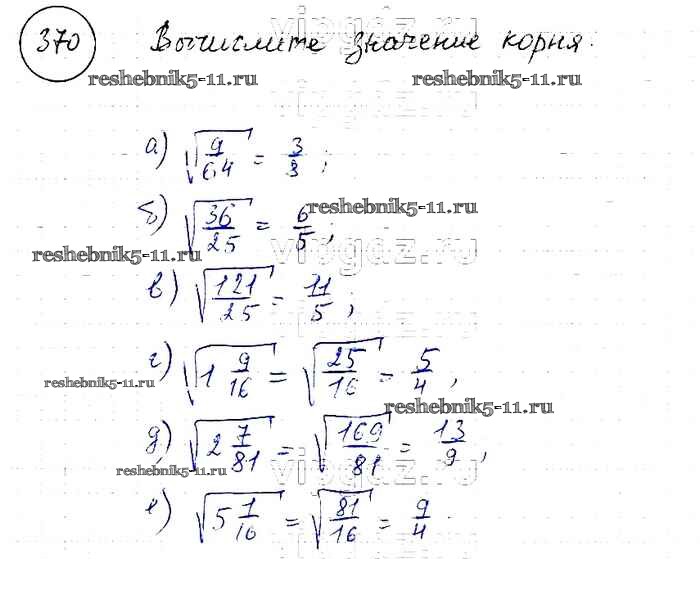 370 Вычислите значение корня.
reshebnik5-11.ru reshebnik5-11.ru
а) √(9/64) = 3/3;
reshebnik5-11.ru
б) √(36/25) = 6/5;
reshebnik5-11.ru
vipgdz.ru
в) √(121/25) = 11/5;
г) √(1 9/16) = √(25/16) = 5/4,
reshebnik5-11.ru
reshebnik5-11.ru
д) √(2 7/81) = √(169/81) = 13/9,
reshebnik5-11.ru
е) √(5 1/16) = √(81/16) = 9/4.